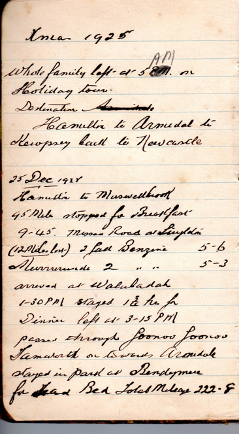 Xmas 1925
Whole family left at 5 AM on
Holiday tour.
Destination
Hamilton to Armidal to
Kempsey back to Newcastle
25 Dec 1925
Hamilton to Muswellbrook
95 Mile stopped for Breakfast
9-45. Missed Road at
(12 Miles lost) 2 Gall Benzine 5-6
Murrurundi 2 " " 5-3
arrived at Wallabadah
1-30 PM stayed 1¾ hr for
Dinner left at 3-15 PM
passed through Goonoo Goonoo
Tamworth on towards Armidale
stayed in park at Bendymeer
for Bed Total Mileage 222-8